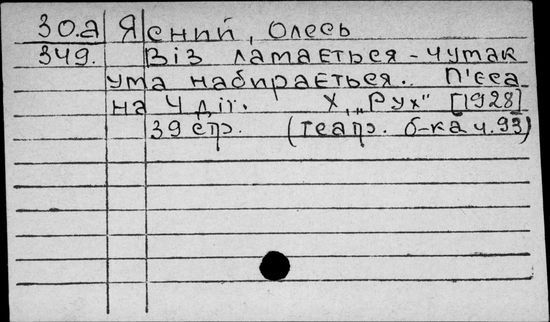 30.а Ясний, Олесь
349. Віз ламається - чумак
ума набирається. П'єса
на 4 дії. Х., „Рух" [1928]
39 стр. (театр. б-ка ч. 93)